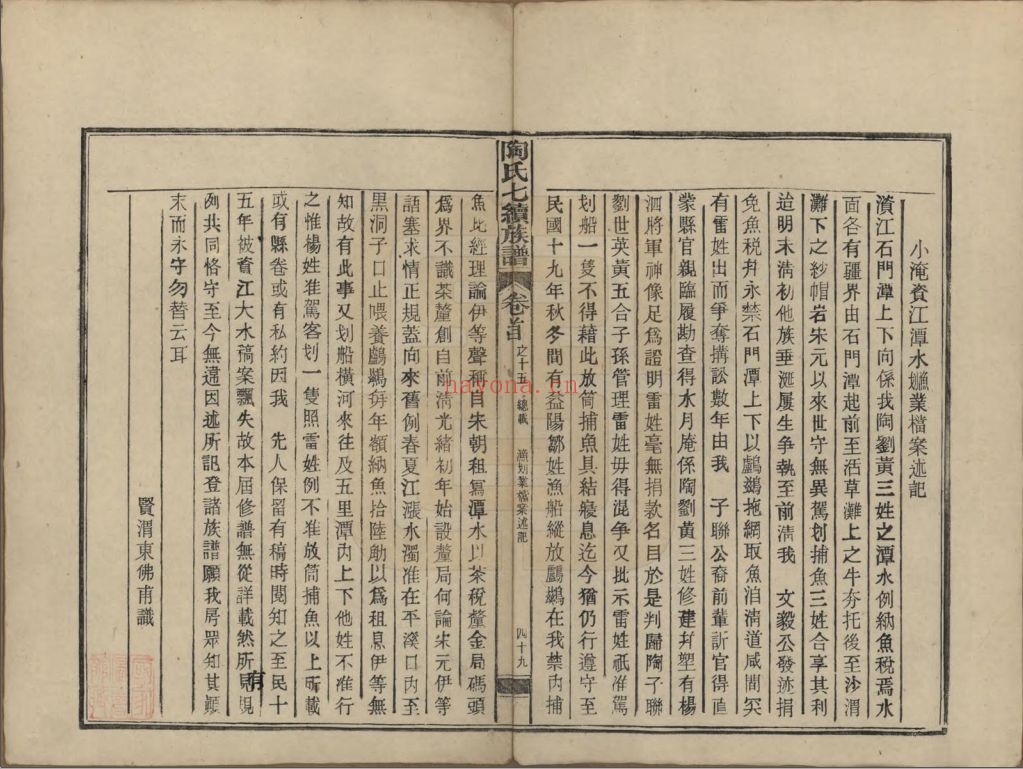 小淹資江潭水漁業檔案述記
濱江石門潭上下向係我陶劉黃三姓之潭水例納魚稅焉水
面各有疆界由石門潭起前至活草灘上之牛夯托後至沙渭
灘下之紗帽岩宋元以來世守無異駕划捕魚三姓合享其利
迨明末淸初他族垂涎屢生爭執至前淸我　文毅公發迹捐
免魚稅幷永禁石門潭上下以鸕鷀拖網取魚洎淸道咸間突
有雷姓出而爭奪搆訟數年由我　子聯公裔前輩訢官得直
蒙縣官親臨履勘查得水月庵係陶劉黃三姓修建幷塑有楊
泗將軍神像足爲證明雷姓毫無捐款名目於是判歸陶子聯
劉世英黃五合子孫管理雷姓毋得混爭又批示雷姓祇准駕
划船一隻不得藉此放筒捕魚具結寢息迄今猶仍行遵守至
民國十九年秋冬間有益陽鄒姓漁船縱放鸕鷀在我禁內捕
陶氏七續族譜　卷首　之十五　總載　漁划業檔案述記　四十九
魚比經理論伊等聲稱自朱朝租寫潭水以茶稅釐金局碼頭
爲界不識茶釐創自前淸光緒初年始設釐局何論宋元伊等
語塞求情正規蓋向來舊例春夏江漲水濁准在平溪口內至
黑洞子口止喂養鸕鷀每年額納魚拾陸觔以爲租息伊等無
知故有此事又划船橫河來往及五里潭內上下他姓不准行
之惟楊姓准駕客划一隻照雷姓例不准放筒捕魚以上所載
或有縣卷或有私約因我　先人保留有稿時閱知之至民十
五年被資江大水稿案飄失故本屆修譜無從詳載然所有規
例共同恪守至今無違因述所記登諸族譜願我房眾知其顚
末而永守勿替云耳
賢渭東佛甫識
nayona.cn